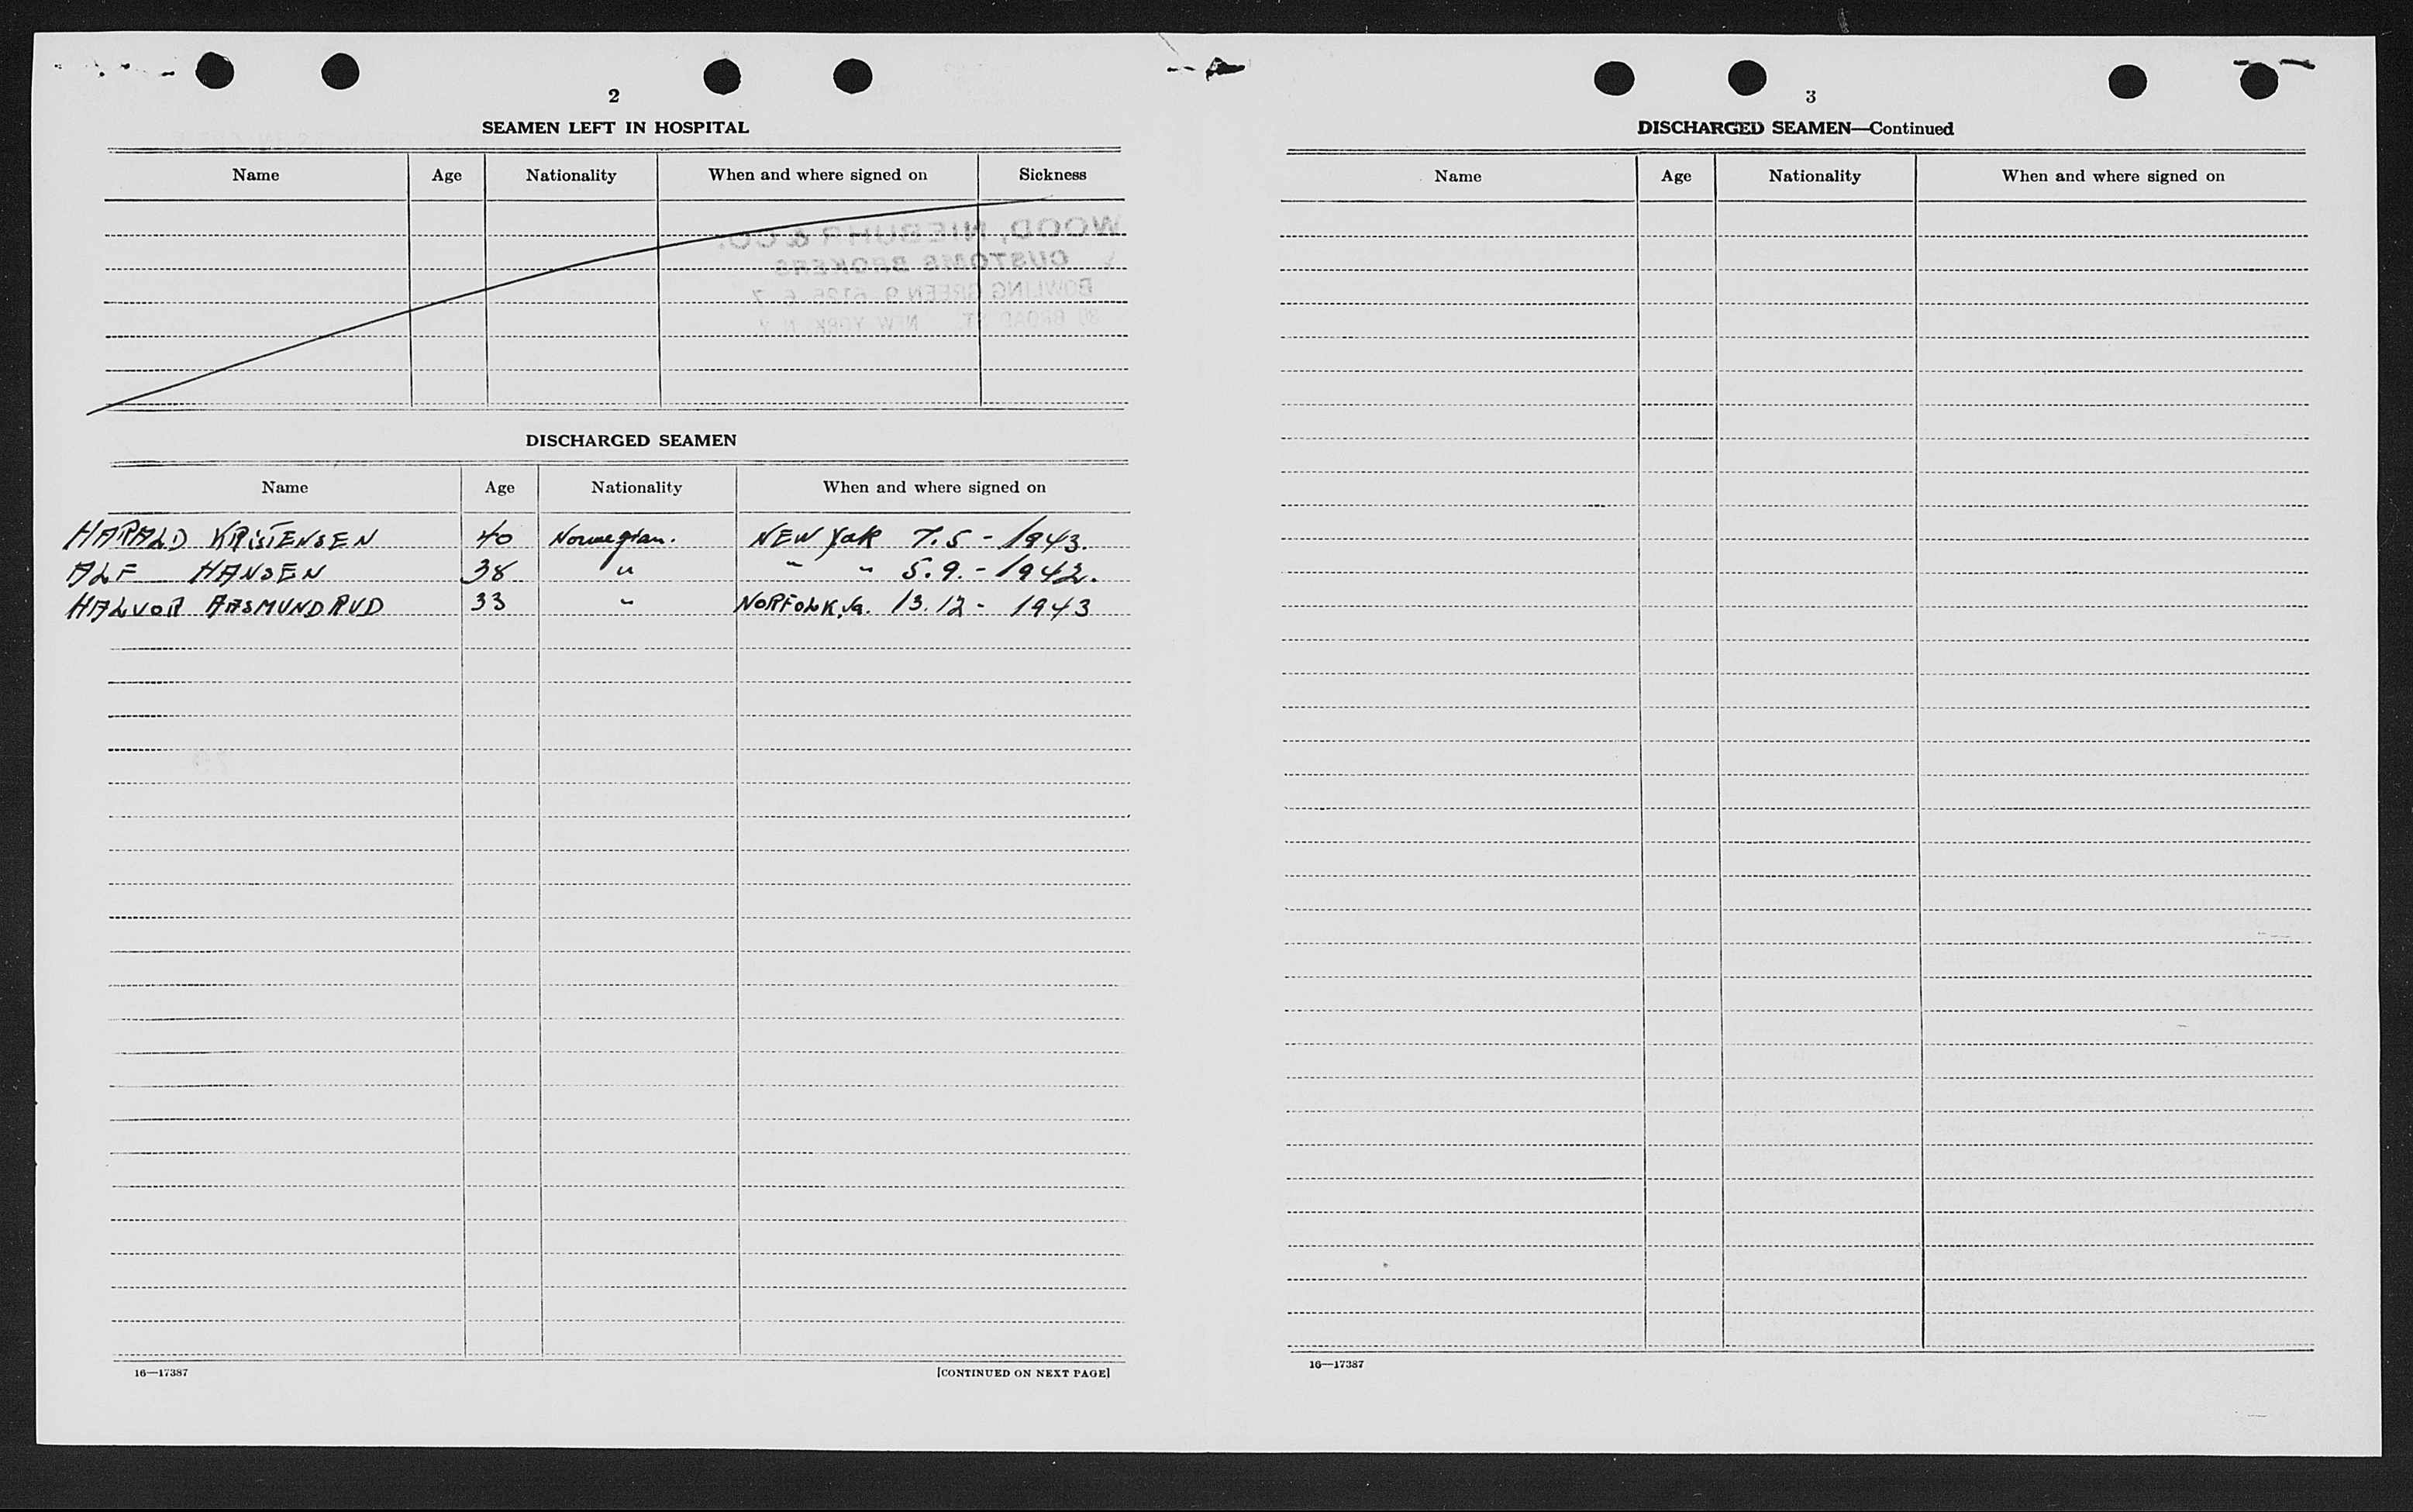 2
SEAMEN LEFT IN HOSPITAL
Name Age Nationality When and where signed on Sickness
WOOD, NIEBUHR & CO.
CUSTOMS BROKERS
BOWLING GREEN 9-5195-6-7
80 BROAD ST. NEW YORK N.Y.
DISCHARGED SEAMEN
Name Age Nationality When and where signed on
HARALD KRISTENSEN 40 Norwegian. NEW York 7.5 - 1943.
ALF HANSEN 38 " " " 5.9. - 1942.
HALVOR AASMUNDRUD 33 " NORFOLK, Va. 13.12 - 1943
16—17387 [CONTINUED ON NEXT PAGE]
3
DISCHARGED SEAMEN—Continued
Name Age Nationality When and where signed on
16—17387